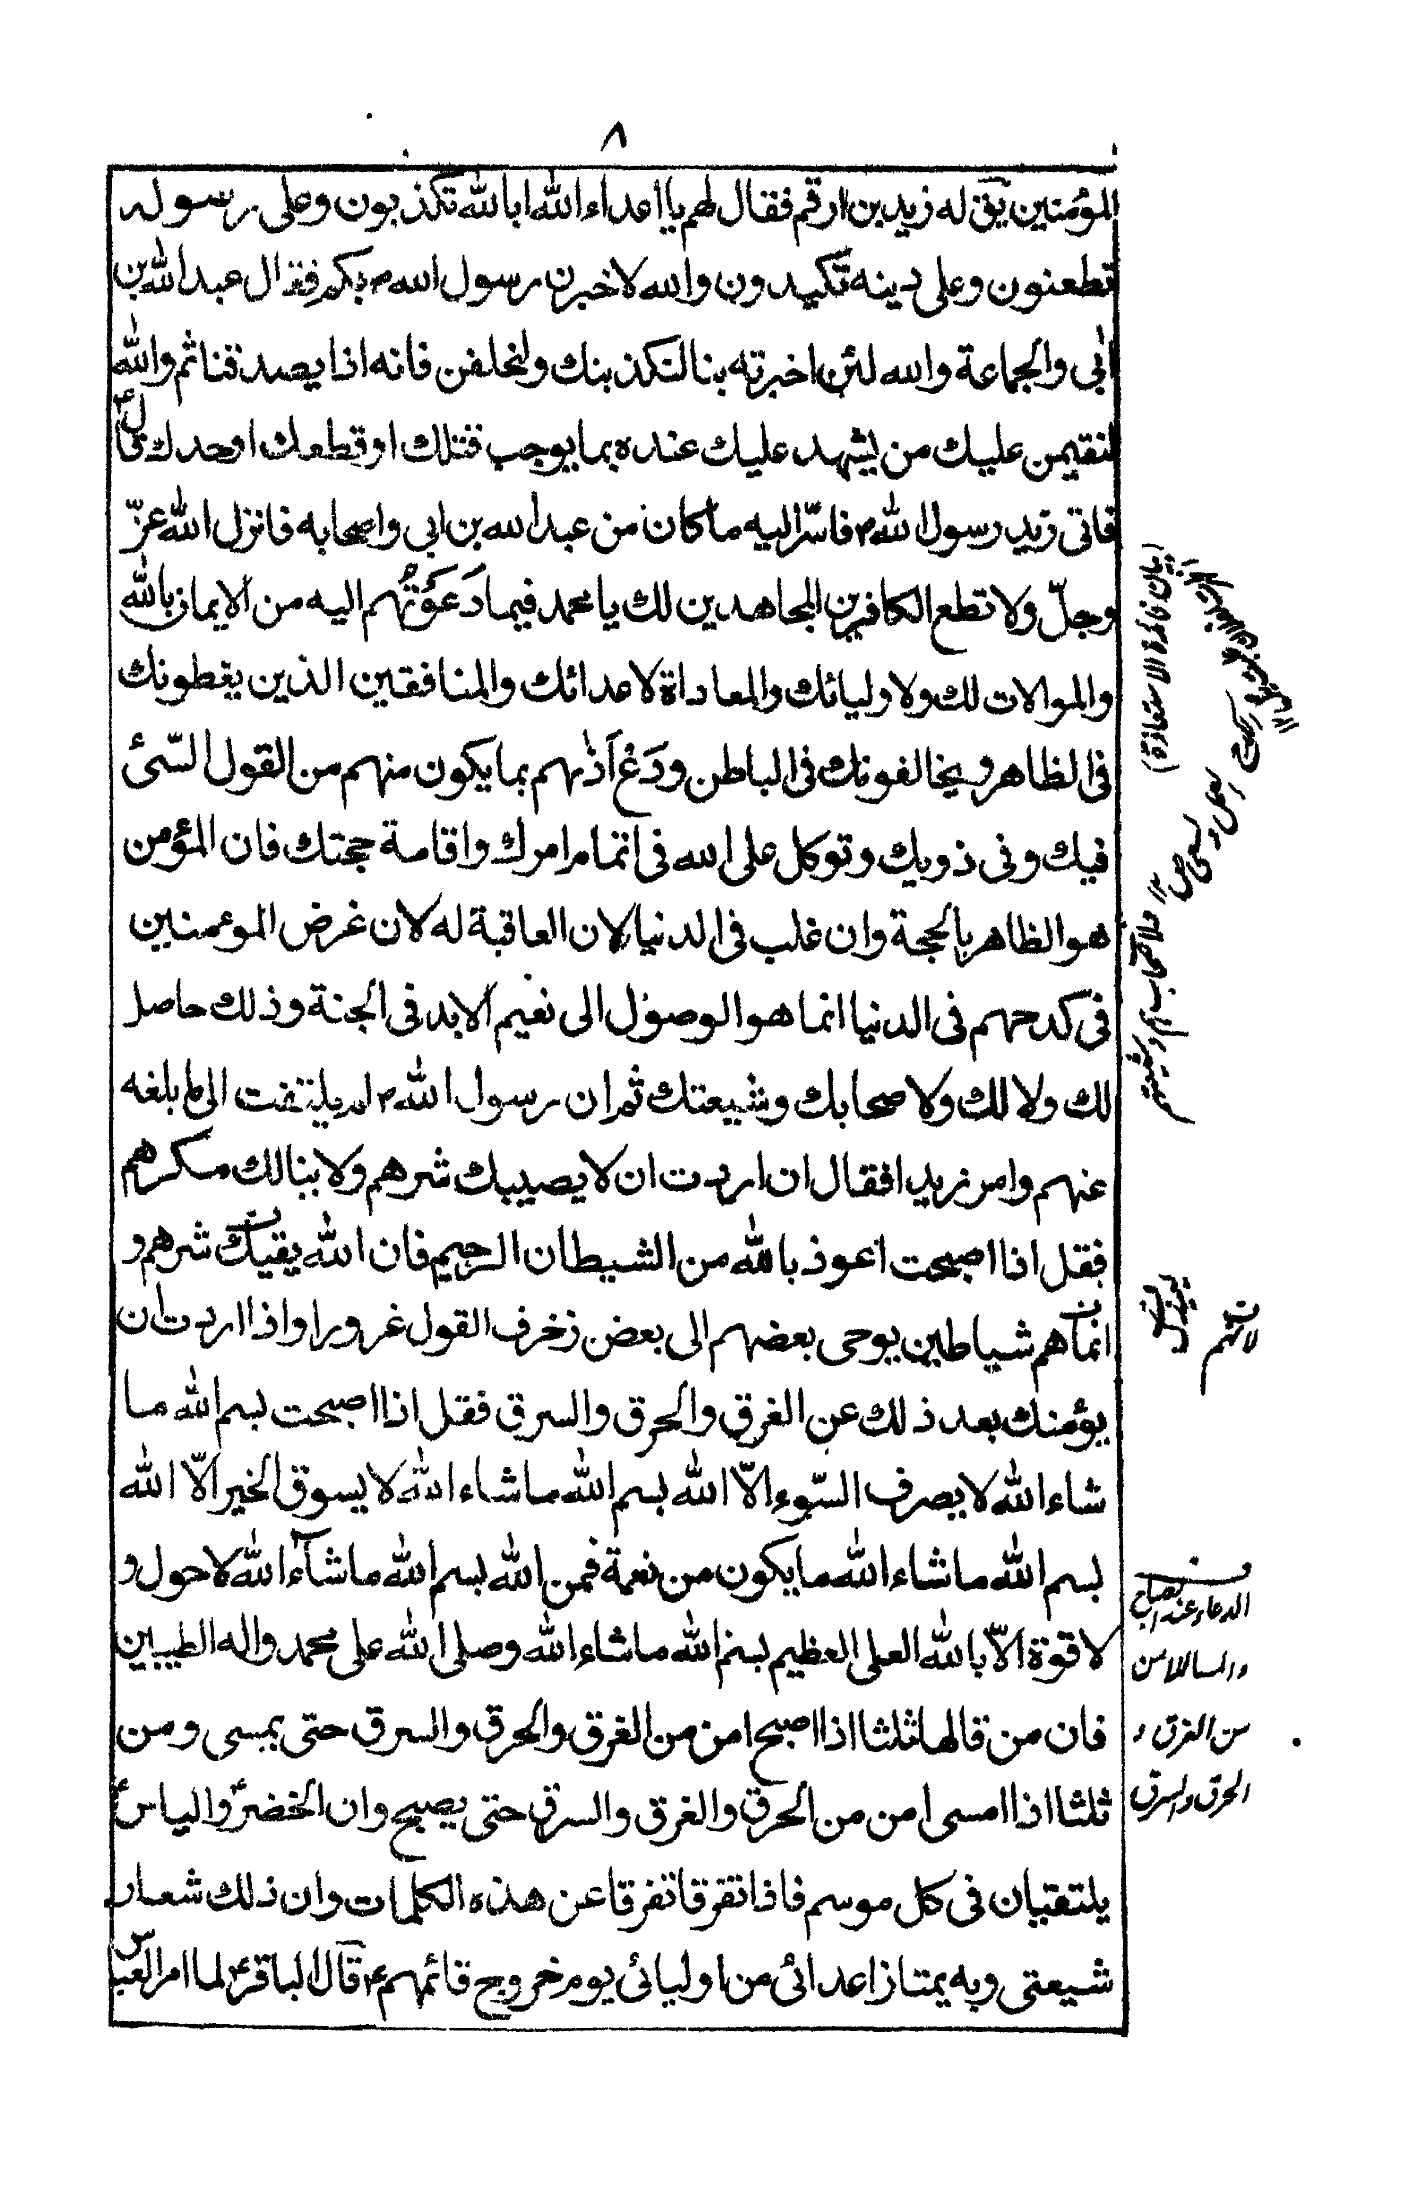 ٨
المؤمنين يق له زيد بن ارقم فقال لهم يا اعداء الله ابالله تكذبون وعلى رسوله
تطعنون وعلى دينه تكيدون والله لاخبرن رسول الله ص بكم فقال عبد الله بن
ابي والجماعة والله لئن اخبرته بنا لنكذبنك ولنحلفن فانه اذا يصدقنا ثم والله
لنقيمن عليك من يشهد عليك عنده بما يوجب قتلك او قطعك او حدك قال
فاتى زيد رسول الله ص فاسرّ اليه ما كان من عبد الله بن ابي واصحابه فانزل الله عزّ
وجلّ ولا تطع الكافرين المجاهدين لك يا محمد فيما دَعَوْتَهُم اليه من الايمان بالله
والموالات لك ولاوليائك والمعاداة لاعدائك والمنافقين الذين يغطونك
في الظاهر ويخالفونك في الباطن ودَعْ اَذٰىهم بما يكون منهم من القول السّيئ
فيك وفى ذويك وتوكل على الله في اتمام امرك واقامة حجتك فان المؤمن
هو الظاهر بالحجة وان غلب في الدنيا لان العاقبة له لان غرض المومنين
في كدحهم في الدنيا انما هو الوصول الى نعيم الابد في الجنة وذلك حاصل
لك ولالك ولاصحابك وشيعتك ثم ان رسول الله ص لم يلتفت الى ما بلغه
عنهم وامر زيدا فقال ان اردت ان لا يصيبك شرهم ولا ينالك مكرهم
فقل اذا اصبحت اعوذ بالله من الشيطان الرجيم فان الله يقيك شرهم و
انما هم شياطين يوحى بعضهم الى بعض زخرف القول غرورا واذا اردت ان
يؤمنك بعد ذلك عن الغرق والحرق والسرق فقل اذا اصبحت بسم الله ما
شاء الله لا يصرف السّوء الاّ الله بسم الله ما شاء الله لا يسوق الخير الاّ الله
بسم الله ما شاء الله ما يكون من نعمة فمن الله بسم الله ما شاء الله لا حول و
لا قوة الاّ بالله العلى العظيم بسم الله ما شاء الله وصلى الله على محمد واله الطيبين
فان من قالها ثلثا اذا اصبح امن من الغرق والحرق والسرق حتى يمسى ومن
ثلثا اذا امسى امن من الحرق والغرق والسرق حتى يصبح وان الخضر ع والياس ع
يلتقيان في كل موسم فاذا تفرقا تفرقا عن هذه الكلمات وان ذلك شعار
شيعتى وبه يمتاز اعدائى من اوليائى يوم خروج قائمهم ع قال الباقر ع لما امر العباس
(بيان فائدة الاستعاذة)
لانهم
الدعاء عند الصباح
والمسا للامن
من الغرق و
الحرق والسرق